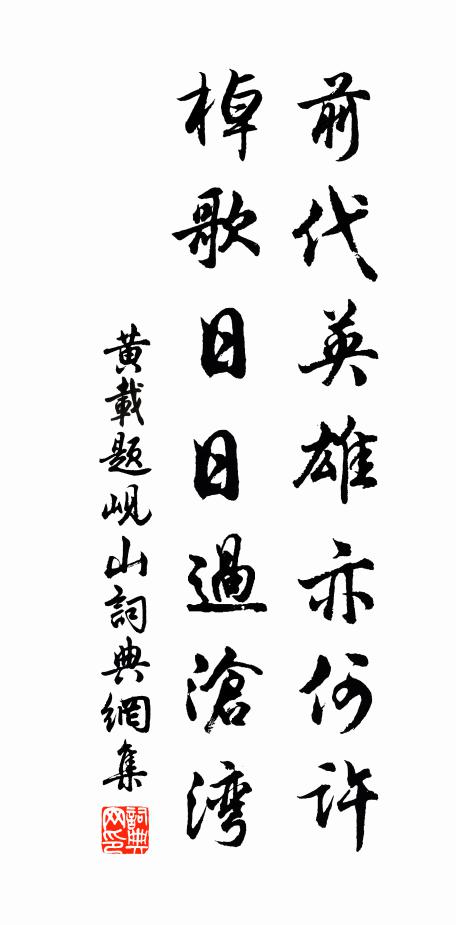 前代英雄亦何許
棹歌日日過滄湾
黄載題峴山詞典網集
詞典网印